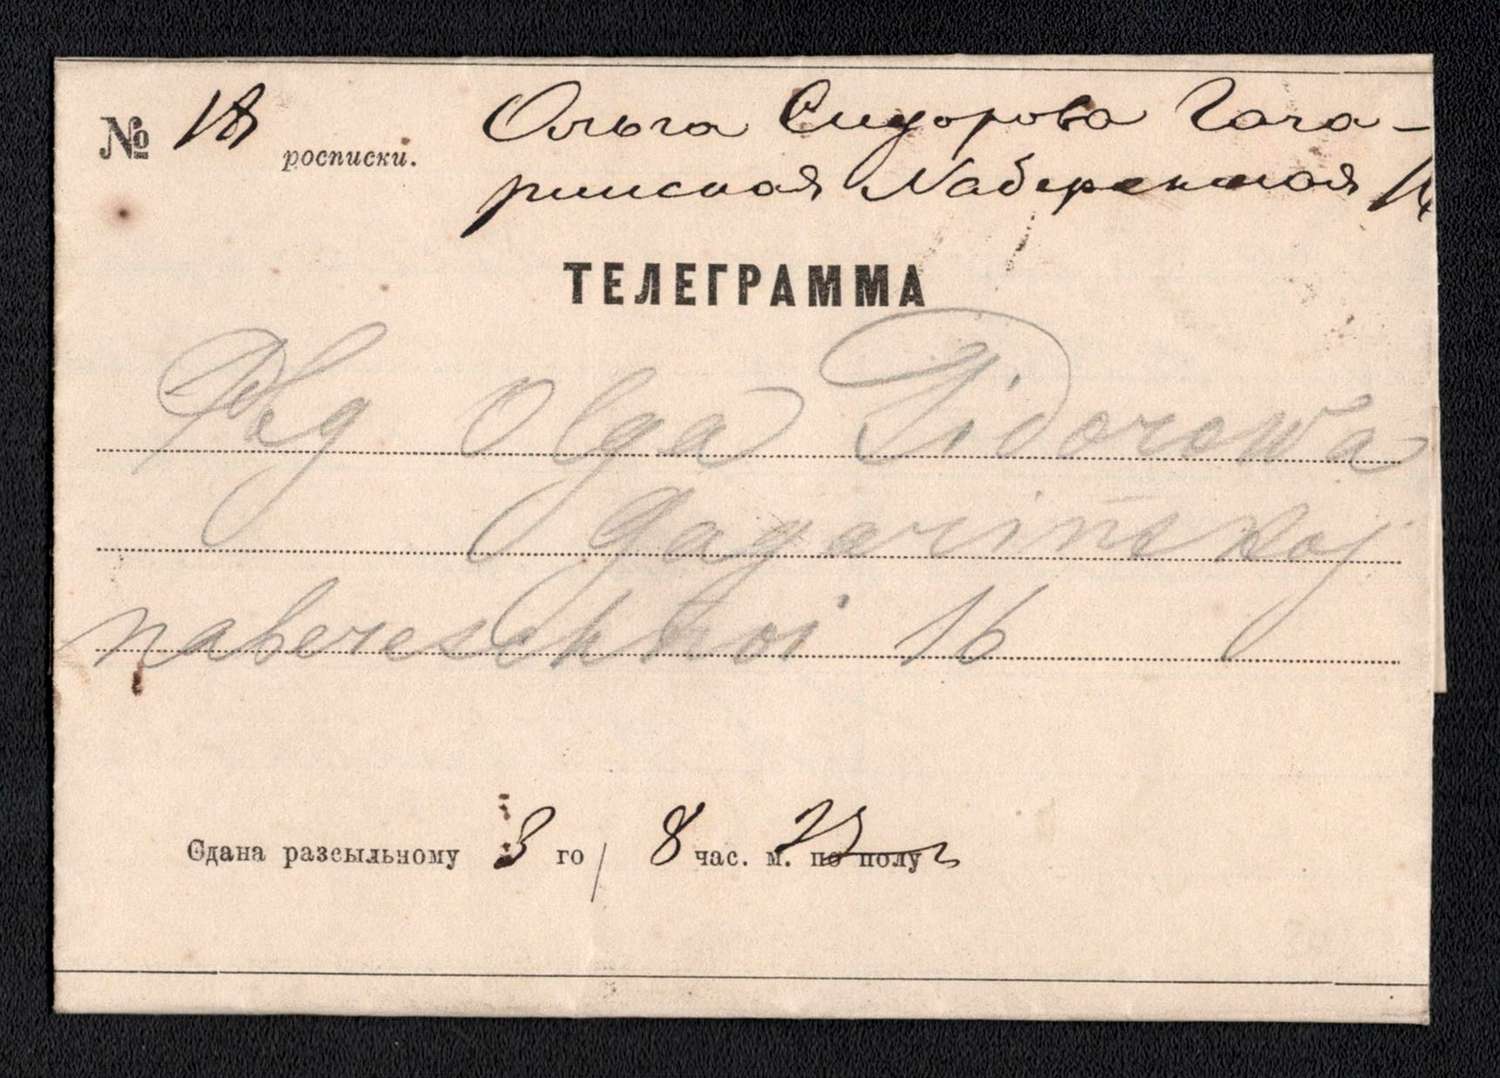 № 18 росписки.
Ольга Сидорова Гага-
ринская Набережная 16
ТЕЛЕГРАММА
Pbg Olga Sidorowa
Gagarinskoj
nabereschnoi 16
Сдана разсыльному 3 го / 8 час. м. 25 по полу